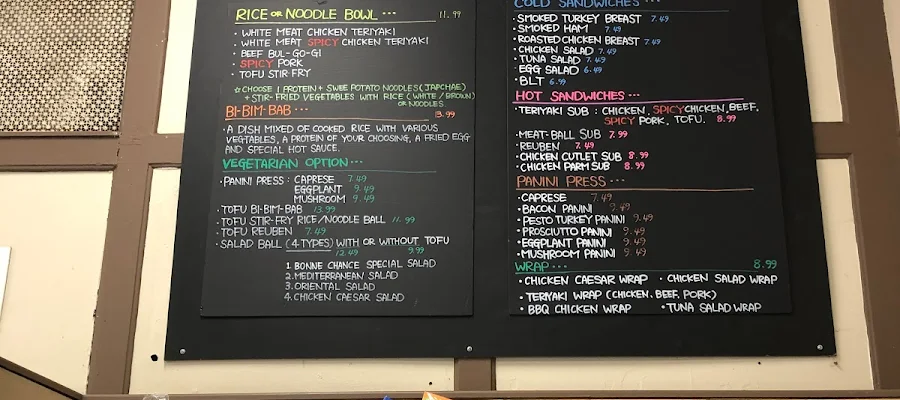 RICE OR NOODLE BOWL ... 11.99
· WHITE MEAT CHICKEN TERIYAKI
· WHITE MEAT SPICY CHICKEN TERIYAKI
· BEEF BUL-GO-GI
· SPICY PORK
· TOFU STIR-FRY
☆CHOOSE 1 PROTEIN + SWEE POTATO NOODLES (JAPCHAE)
+ STIR-FRIED VEGETABLES WITH RICE (WHITE/BROWN)
OR NOODLES
BI-BIM-BAB ... 13.99
· A DISH MIXED OF COOKED RICE WITH VARIOUS
VEGTABLES, A PROTEIN OF YOUR CHOOSING, A FRIED EGG
AND SPECIAL HOT SAUCE.
VEGETARIAN OPTION ...
· PANINI PRESS : CAPRESE 7.49
EGGPLANT 9.49
MUSHROOM 9.49
· TOFU BI-BIM-BAB 13.99
· TOFU STIR-FRY RICE/NOODLE BALL 11.99
· TOFU REUBEN 7.49
· SALAD BALL (4 TYPES) WITH OR WITHOUT TOFU
12.49 9.99
1. BONNE CHANCE SPECIAL SALAD
2. MEDITERRANEAN SALAD
3. ORIENTAL SALAD
4. CHICKEN CAESAR SALAD
COLD SANDWICHES ...
· SMOKED TURKEY BREAST 7.49
· SMOKED HAM 7.49
· ROASTED CHICKEN BREAST 7.49
· CHICKEN SALAD 7.49
· TUNA SALAD 7.49
· EGG SALAD 6.49
· BLT 6.99
HOT SANDWICHES ...
· TERIYAKI SUB : CHICKEN, SPICY CHICKEN, BEEF,
SPICY PORK, TOFU. 8.99
· MEAT-BALL SUB 7.99
· REUBEN 7.49
· CHICKEN CUTLET SUB 8.99
· CHICKEN PARM SUB 8.99
PANINI PRESS ...
· CAPRESE 7.49
· BACON PANINI 9.49
· PESTO TURKEY PANINI 9.49
· PROSCIUTTO PANINI 9.49
· EGGPLANT PANINI 9.49
· MUSHROOM PANINI 9.49
WRAP ... 8.99
· CHICKEN CAESAR WRAP · CHICKEN SALAD WRAP
· TERIYAKI WRAP (CHICKEN, BEEF, PORK)
· BBQ CHICKEN WRAP · TUNA SALAD WRAP